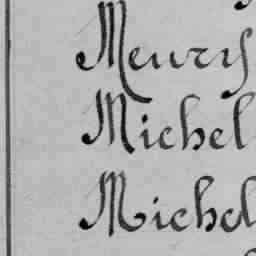 Meurys
Michel
Michel